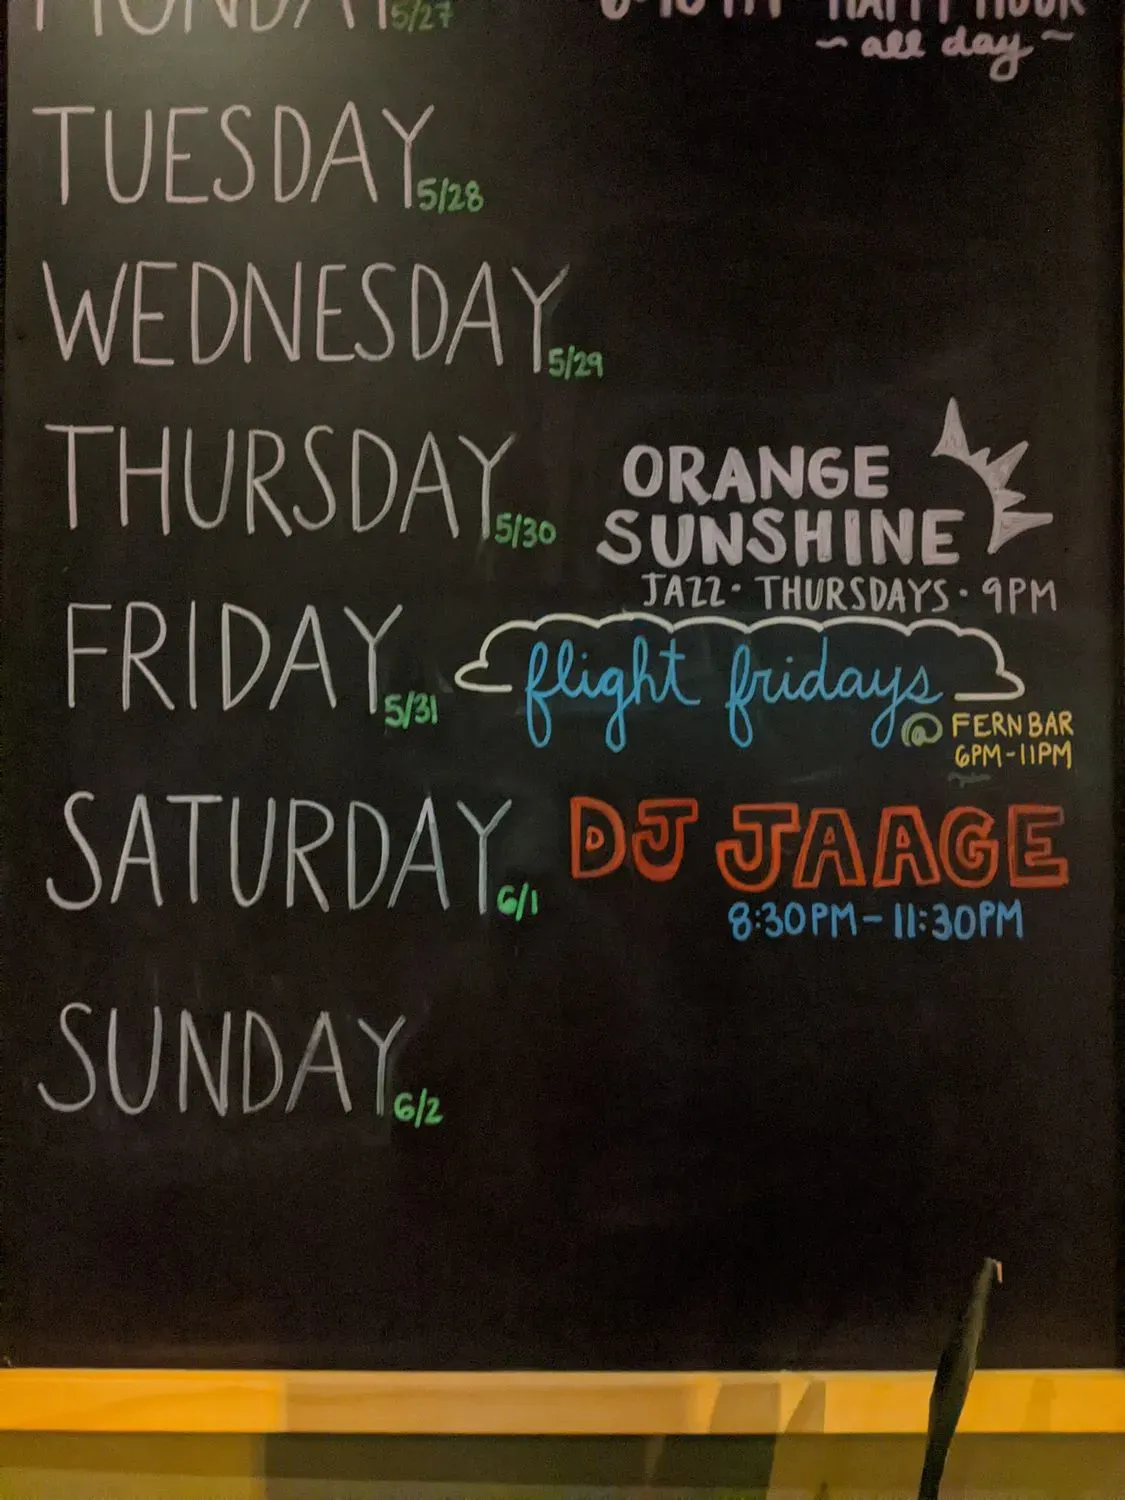 MONDAY 5/27
HAPPY HOUR
~ all day ~
TUESDAY 5/28
WEDNESDAY 5/29
THURSDAY 5/30
ORANGE
SUNSHINE
JAZZ · THURSDAYS · 9PM
FRIDAY 5/31
flight fridays
@ FERN BAR
6PM-11PM
SATURDAY 6/1
DJ JAAGE
8:30PM-11:30PM
SUNDAY 6/2